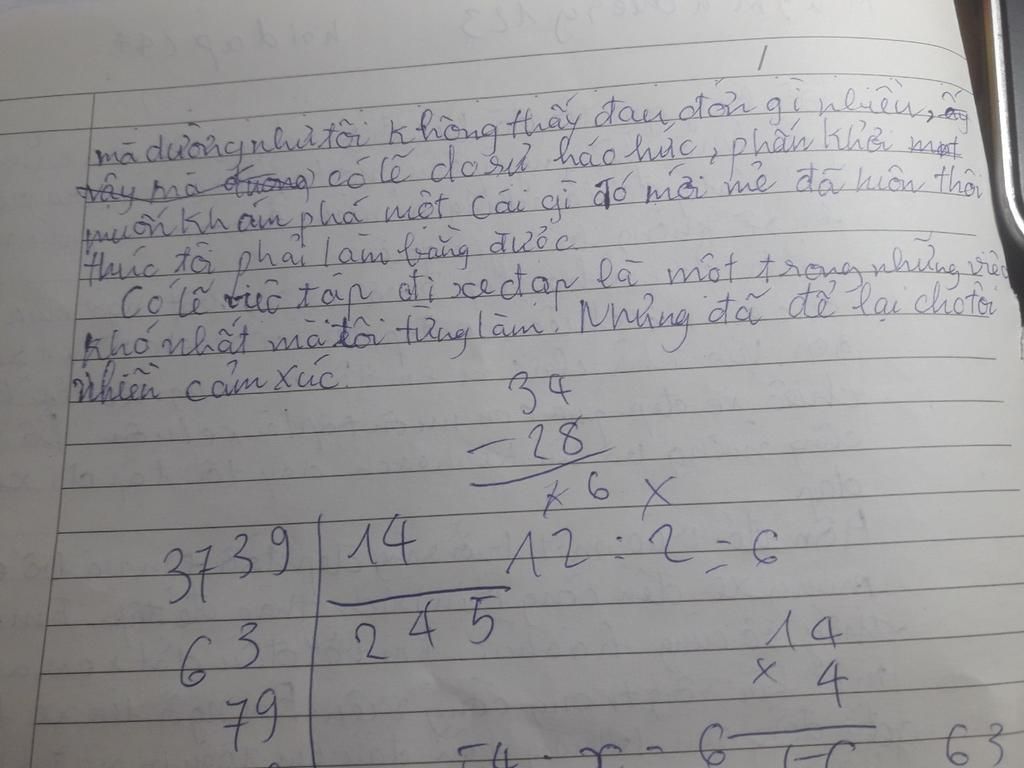 mà dường như tôi không thấy đau đớn gì nhiều,
vậy mà dường có lẽ do sự háo hức, phấn khởi một
muốn khám phá một cái gì đó mới mẻ đã hiôn thôi
thúc tôi phải làm bằng được
Có lẽ việc tập đi xe đạp là một trong những việc
khó nhất mà tôi từng làm. Nhưng đã để lại cho tôi
nhiều cảm xúc.
34
- 28
x 6 x
3739 14 12 : 2 = 6
63 245 14
79 x 4
6 63